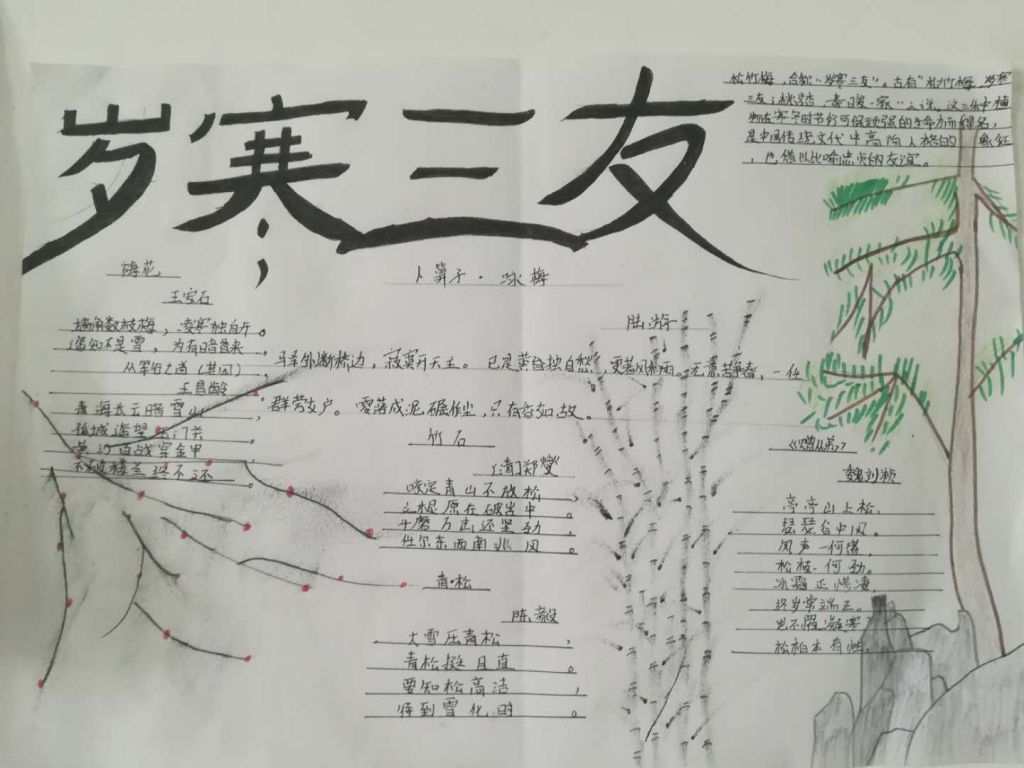 岁寒三友
松竹梅，合称"岁寒三友"。古有"松竹梅，岁寒
三友；桃李杏，春日暖一家"之说，这三种植
物在寒冬时节仍可保顽强的生命力而得名，
是中国传统文化中高尚人格的象征，
也借以比喻忠贞的友谊。
梅花
王安石
墙角数枝梅，凌寒独自开。
遥知不是雪，为有暗香来
从军行七首（其四）
王昌龄
青海长云暗雪山，
孤城遥望玉门关。
黄沙百战穿金甲，
不破楼兰终不还。
卜算子·咏梅
陆游
驿外断桥边，寂寞开无主。已是黄昏独自愁，更著风和雨。无意苦争春，一任
群芳妒。零落成泥碾作尘，只有香如故。
竹石
[清]郑燮
咬定青山不放松，
立根原在破岩中。
千磨万击还坚劲，
任尔东西南北风。
青·松
陈毅
大雪压青松，
青松挺且直。
要知松高洁，
待到雪化时。
《赠从弟》
魏刘桢
亭亭山上松，
瑟瑟谷中风。
风声一何盛，
松枝一何劲。
冰霜正惨凄，
终岁常端正。
岂不罹凝寒？
松柏本有性。